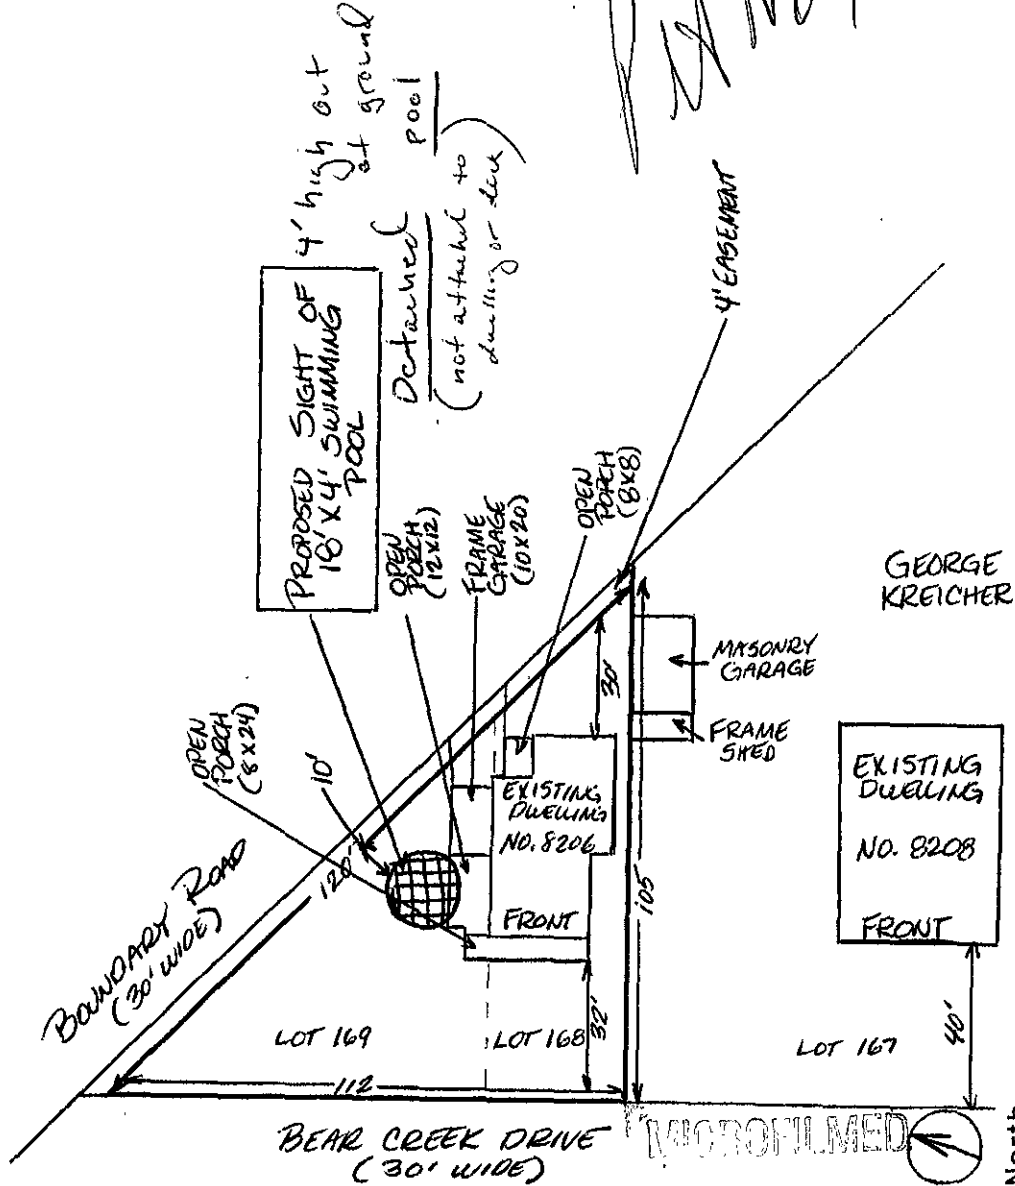 4' high out
at ground
pool
Detached
(not attached to
dwelling or deck)
PROPOSED SIGHT OF
18' X 4' SWIMMING
POOL
4' EASEMENT
OPEN
PORCH
(12X12)
FRAME
GARAGE
(10X20)
OPEN
PORCH
(8X8)
OPEN
PORCH
(8X24)
10'
120'
BOUNDARY ROAD
(30' WIDE)
30'
GEORGE
KREICHER
MASONRY
GARAGE
FRAME
SHED
EXISTING
DWELLING
NO. 8206
FRONT
EXISTING
DWELLING
NO. 8208
FRONT
105
32'
40'
LOT 169
LOT 168
LOT 167
112
BEAR CREEK DRIVE
(30' WIDE)
MICROFILMED
North